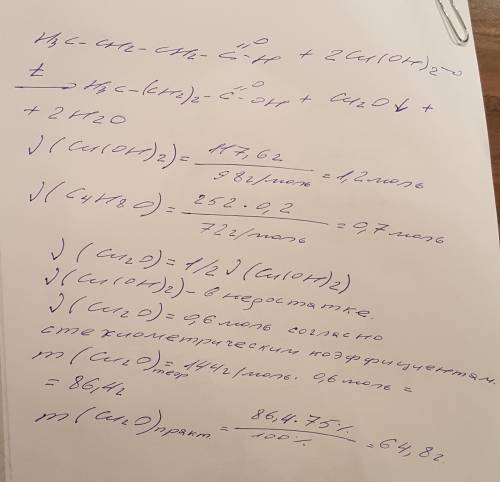 H₃C-CH₂-CH₂-C(=O)-H + 2Cu(OH)₂ →
t → H₃C-(CH₂)₂-C(=O)-OH + Cu₂O↓ +
+ 2H₂O
ν(Cu(OH)₂) = 117,6г / 98г/моль = 1,2моль
ν(C₄H₈O) = 252·0,2 / 72г/моль = 0,7моль
ν(Cu₂O) = 1/2 ν(Cu(OH)₂)
ν(Cu(OH)₂) - в недостатке.
ν(Cu₂O) = 0,6 моль согласно
стехиометрическим коэффициентам.
m(Cu₂O)теор = 144г/моль · 0,6 моль =
= 86,4г
m(Cu₂O)практ = 86,4·75% / 100% = 64,8г.